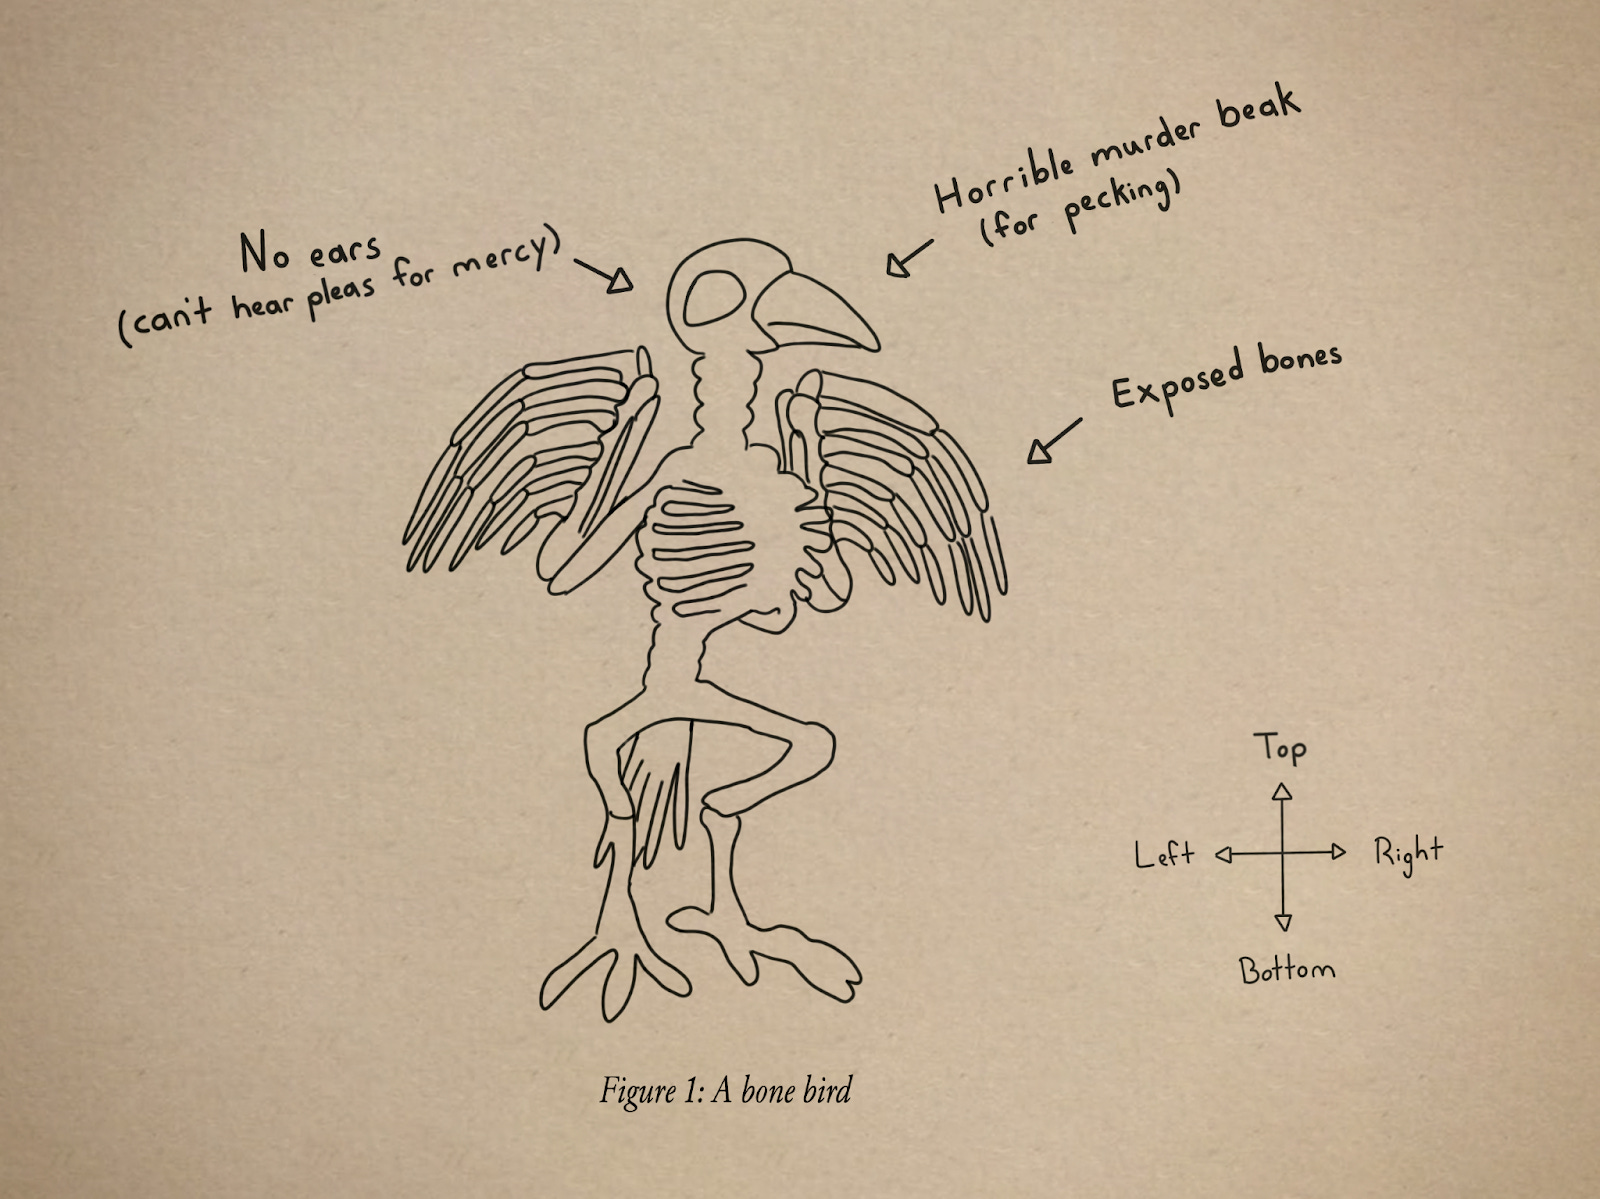 Horrible murder beak
(for pecking)
No ears
(can't hear pleas for mercy)
Exposed bones
Top
Left
Right
Bottom
Figure 1: A bone bird